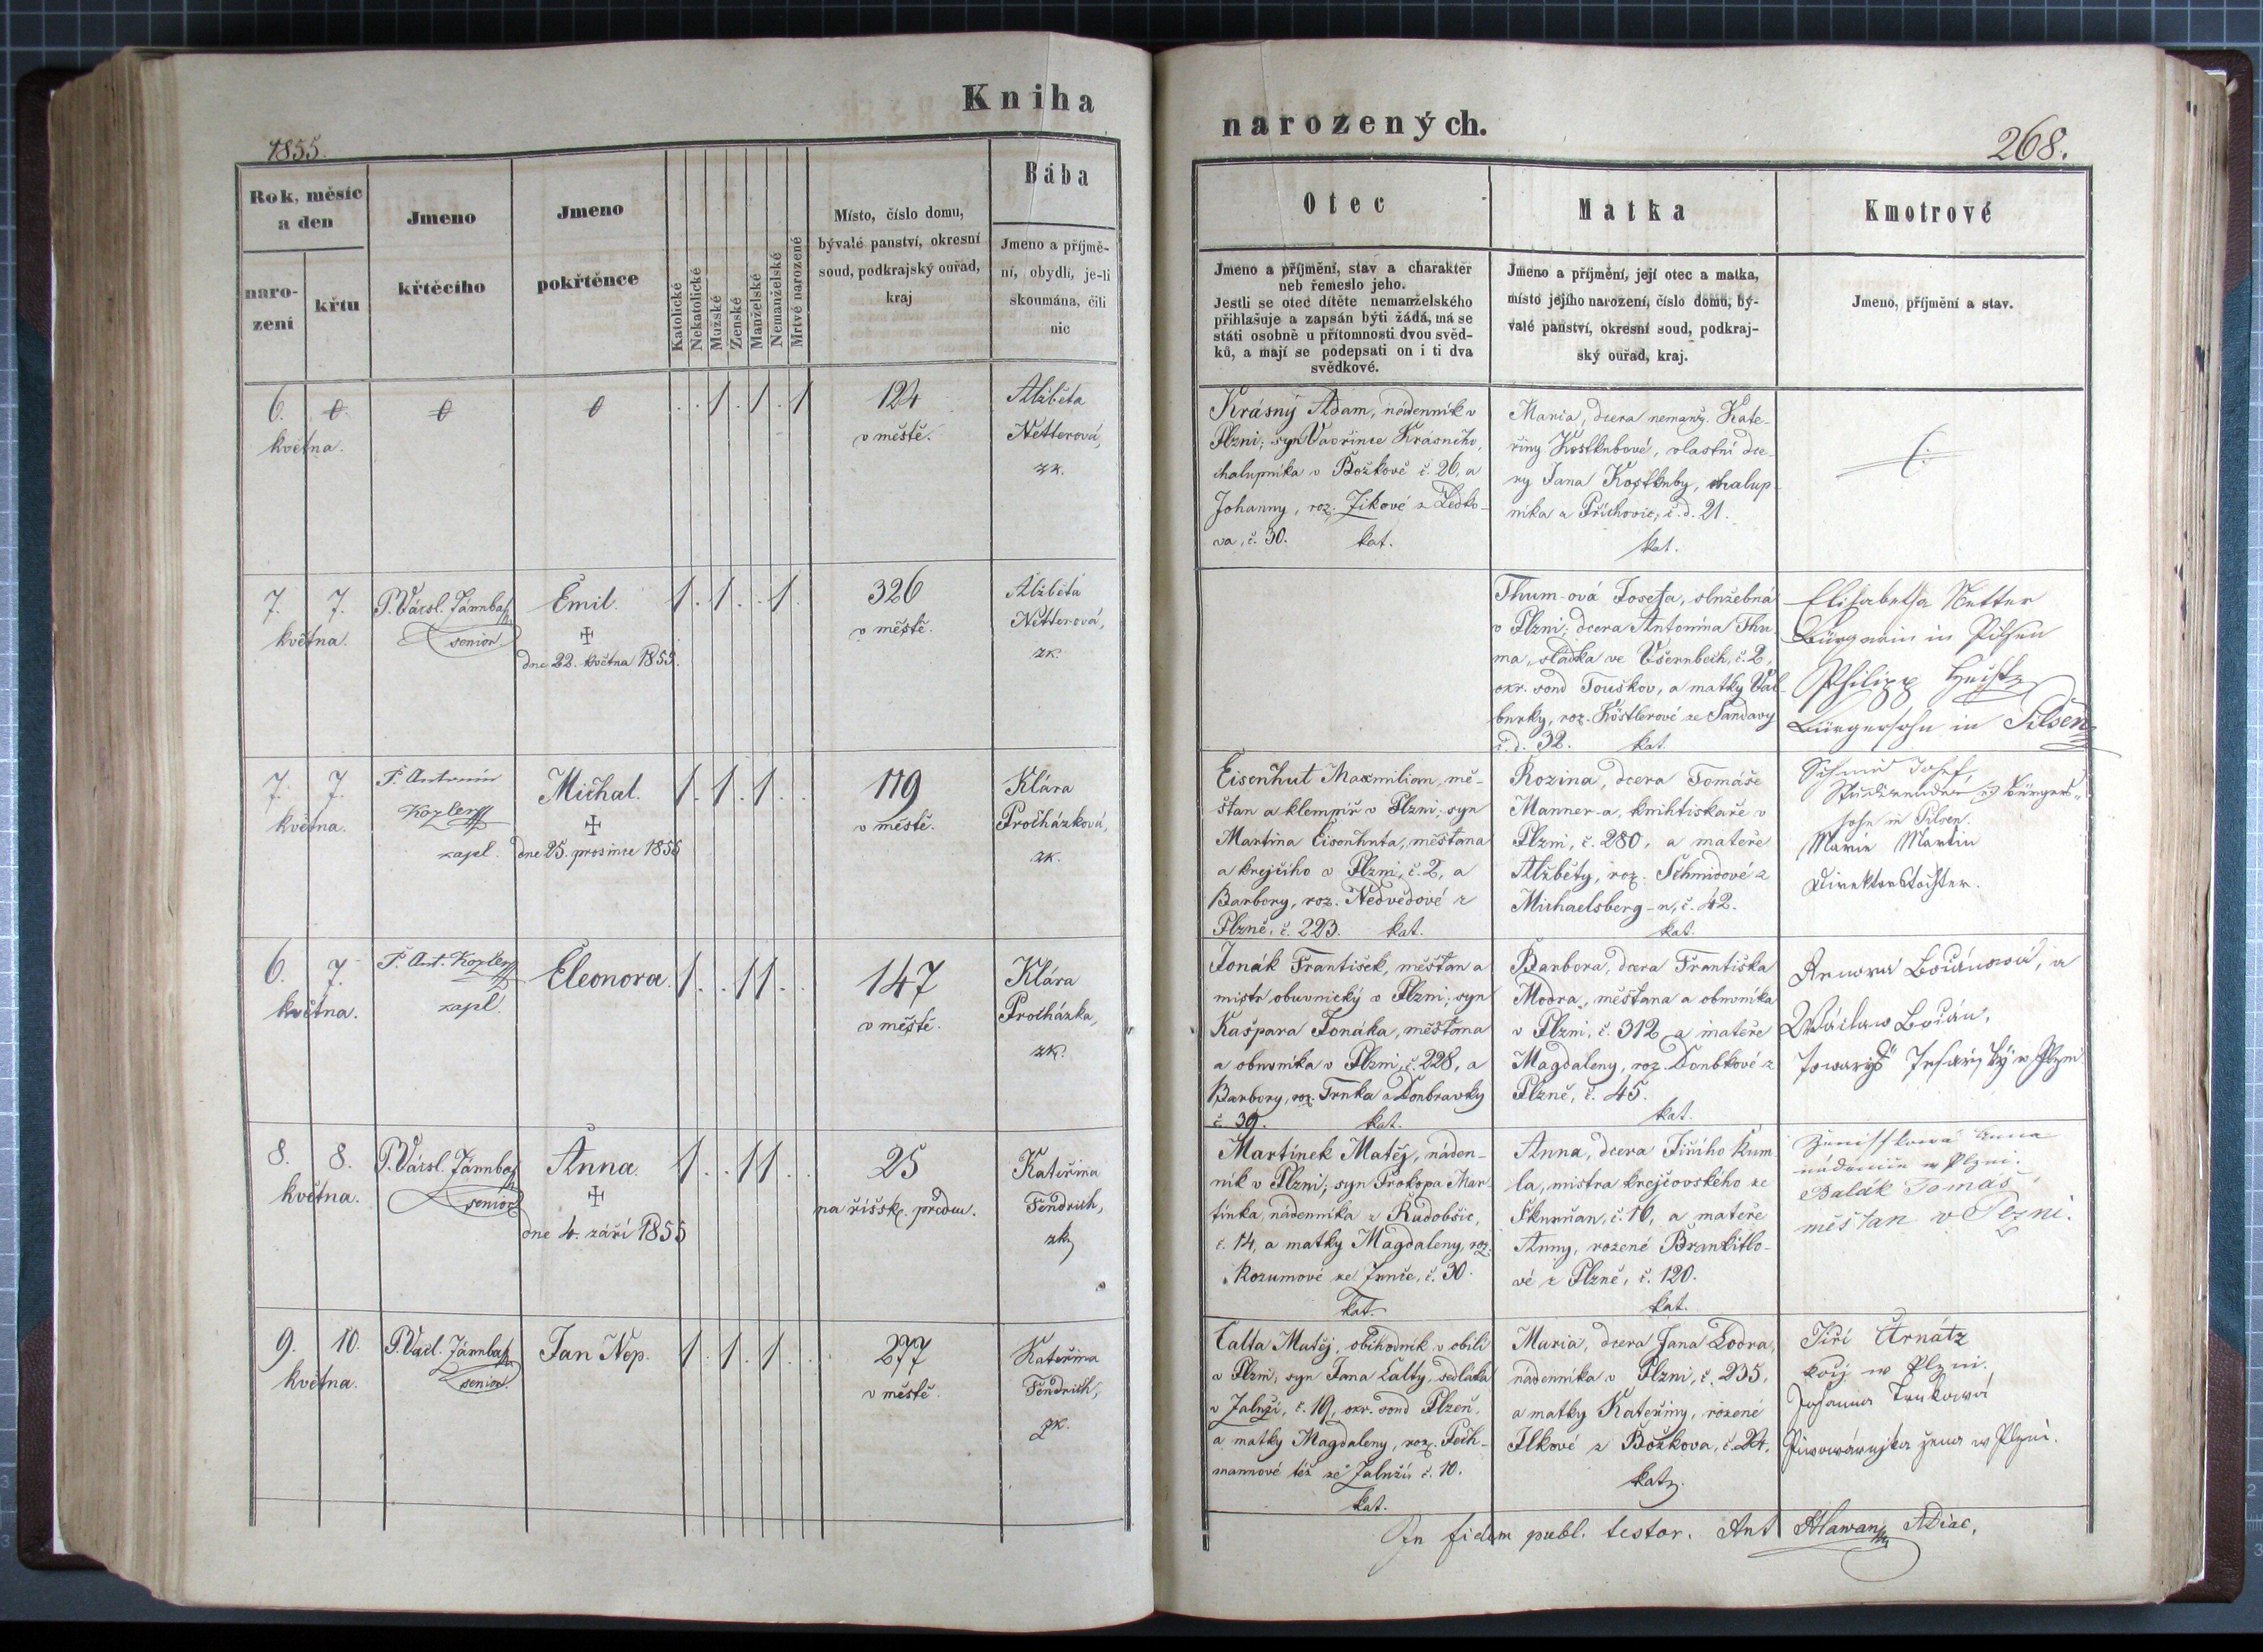 Kniha
1855.
Rok, měsíc
a den
naro-
zení
křtu
Jmeno
křtěcího
Jmeno
pokřtěnce
Katolické
Nekatolické
Mužské
Ženské
Manželské
Nemanželské
Mrtvé narozené
Místo, číslo domu,
bývalé panství, okresní
soud, podkrajský ouřad,
kraj
Bába
Jmeno a příjmě-
ní, obydlí, je-li
skoumána, čili
nic
6. 0. 0 0 . . 1 . 1 . 1
května.
124
v městě.
Alžběta
Netterová,
zk.
7. 7.
května.
P. Vácsl.
senior
Emil.
dne 22. května 1855.
1 . 1 . . 1 .
326
v městě.
Alžběta
Netterová,
zk.
7. 7.
května.
P. Antonín
Kozler
kapl.
Michal.
dne 25. prosince 1855
1 . 1 . 1 . .
119
v městě.
Klára
Procházková,
zk.
6. 7.
května.
P. Ant. Kozler
kapl.
Eleonora.
1 . . 1 1 . .
147
v městě.
Klára
Procházka,
zk.
8. 8.
května.
P. Vácsl.
senior
Anna.
dne 4. září 1855
1 . . 1 1 . .
25
na říšsk. předm.
Kateřina
Fendrich,
zk.
9. 10.
května.
P. Vacl.
senior.
Jan Nep.
1 . 1 . 1 . .
277
v městě.
Kateřina
Fendrich,
zk.
narozených.
268.
Otec
Jmeno a příjmění, stav a charakter
neb řemeslo jeho.
Jestli se otec dítěte nemanželského
přihlašuje a zapsán býti žádá, má se
státi osobně u přítomnosti dvou svěd-
ků, a mají se podepsati on i ti dva
svědkové.
Matka
Jmeno a příjmění, její otec a matka,
místo jejího narození, číslo domu, bý-
valé panství, okresní soud, podkraj-
ský ouřad, kraj.
Kmotrové
Jmeno, příjmění a stav.
Krásný Adam, nádenník v
Plzni; syn Vavřince Krásného,
chalupníka v Božkově č. 26, a
Johanny, roz. Zikové z Ledko-
va, č. 30. kat.
Maria, dcera nemanž. Kate-
řiny Kostknbové, vlastní dce-
ry Jana Kostknby, chalup-
níka z Příchovic, č. d. 21.
kat.
Thum-ová Josefa, služebná
v Plzni; dcera Antonína Thu-
ma, sládka ve Všerubech, č. 2,
okr. soud Touškov, a matky Val-
burky, roz. Köstlerové ze Žandavy
č. d. 32. kat.
Elisabetha Netter
Bürgerin in Pilsen
Philipp
Bürgersohn in Pilsen
Eisenhut Maxmilian, mě-
šťan a klempíř v Plzni; syn
Martina Eisenhuta, měšťana
a krejčího v Plzni, č. 2, a
Barbory, roz. Nedvědové z
Plzně, č. 223. kat.
Rozina, dcera Tomáše
Manner-a, knihtiskaře v
Plzni, č. 280, a mateře
Alžběty, roz. Schmidové z
Michaelsberg-u, č. 42.
kat.
Schmid Josef,
Studirender Bürgers-
sohn in Pilsen.
Marie Martin
Direktorstochter.
Jonák František, měšťan a
mistr obuvnický v Plzni; syn
Kašpara Jonáka, měšťana
a obuvníka v Plzni, č. 228, a
Barbory, roz. Trnka z Doubravky
č. 39. kat.
Barbora, dcera Františka
Modra, měšťana a obuvníka
v Plzni, č. 312, a mateře
Magdaleny, roz. Doubkové z
Plzně, č. 45.
kat.
Bočánová, a
Wáclaw Bočán,
towaryš w Plzni
Martínek Matěj, náden-
ník v Plzni; syn Prokopa Mar-
tínka, nádenníka z Rudobšic,
č. 14, a matky Magdaleny, roz.
Rozumové ze Žinče, č. 30.
kat.
Anna, dcera Jiřího Kum-
la, mistra krejčovského ze
Skurňan, č. 16, a mateře
Anny, rozené
vé z Plzně, č. 120.
kat.
Anna
w Plzni.
Balák Tomáš,
měšťan v Plzni.
Calta Matěj, obchodník v obilí
v Plzni, syn Jana Calty, sedláka
v Zaluží, č. 19, okr. soud Plzeň,
a matky Magdaleny, roz. Pech-
mannové též ze Zaluží č. 10.
kat.
Maria, dcera Jana Lodra,
nádenníka v Plzni, č. 235,
a matky Kateřiny, rozené
Jlkové z Božkova, č. 24.
kat.
Jiří
w Plzni.
Johanna
žena w Plzni.
In fidem publ. testor. Ant